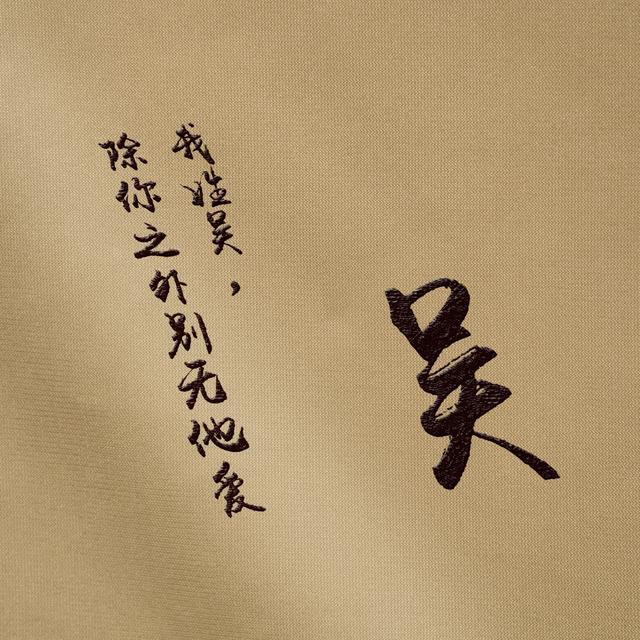 我姓吴，
除你之外别无他爱
吴